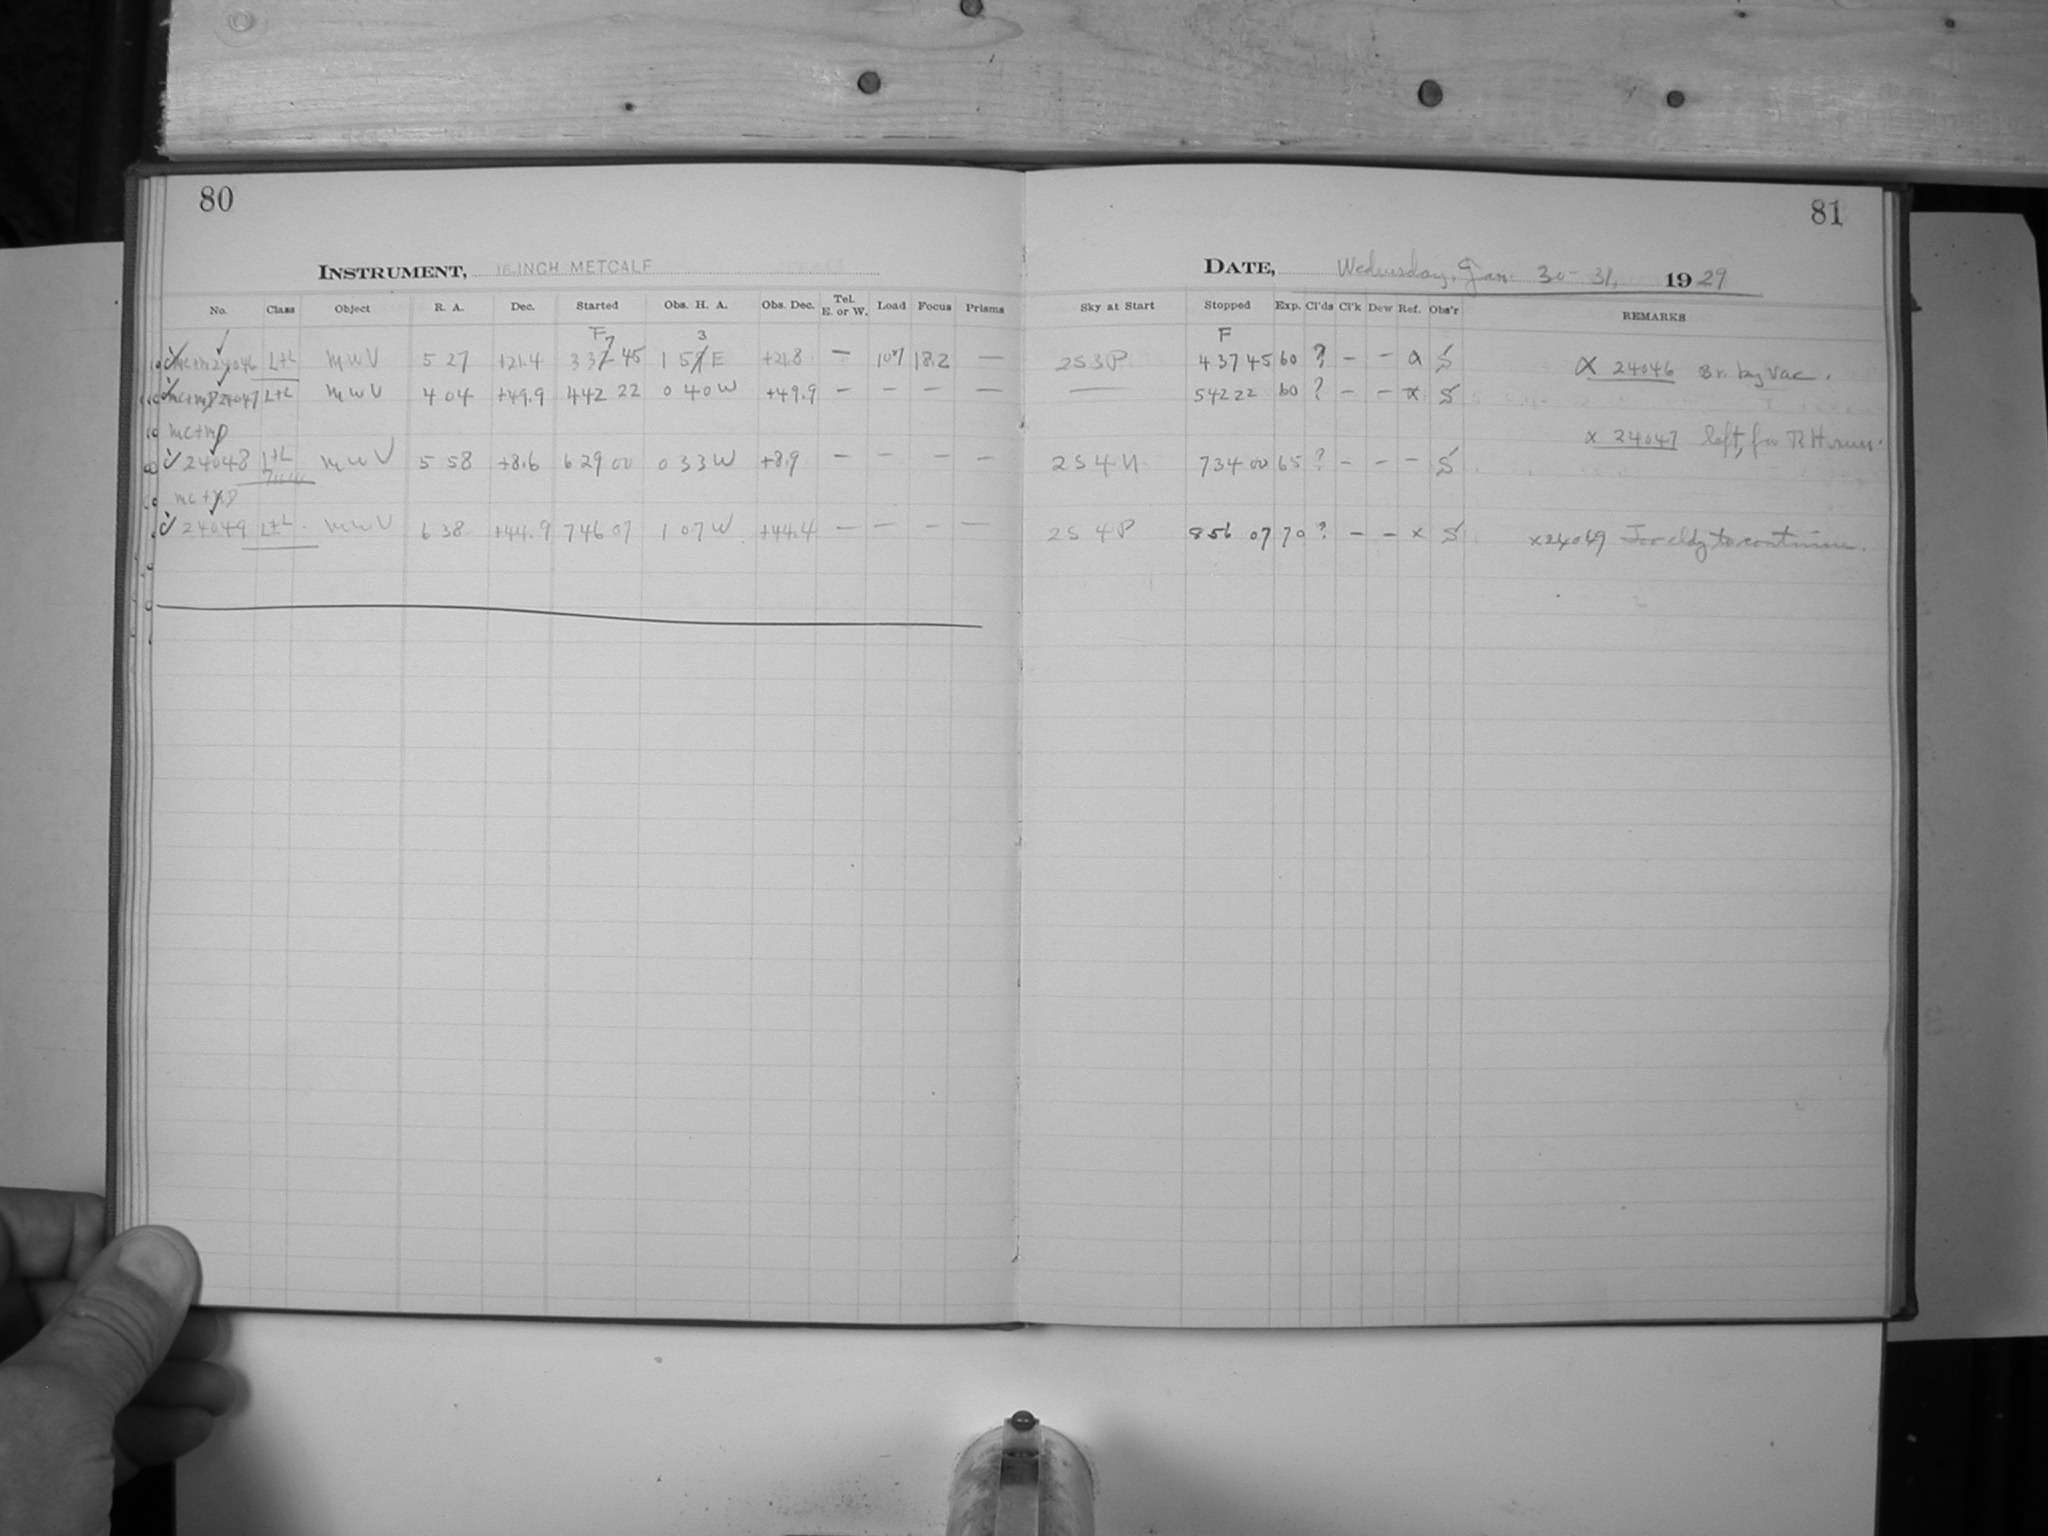 80
81
INSTRUMENT, 16 INCH METCALF
DATE, Wednesday, Jan 30-31, 1929
No. Class Object R. A. Dec. Started Obs. H. A. Obs. Dec. Tel. E. or W. Load Focus Prisms Sky at Start Stopped Exp. Cl'ds Cl'k Dew Ref. Obs'r REMARKS
F 7 3 F
mc+m 24046 L+L MWV 5 27 +21.4 337 45 1 5 E +21.8 — 107 18.2 — 2S3P 437 45 60 ? — — a S α 24046 by Vac.
24047 L+L MWV 4 04 +49.9 442 22 0 40 W +49.9 — — — — — 542 22 60 ? — — x S
mc+mp x 24047 left, for run.
24048 L+L MWV 5 58 +8.6 629 00 0 33 W +8.9 — — — — 2S4 734 00 65 ? — — — S
mc+mp
24049 L+L MWV 6 38 +44.9 746 07 1 07 W +44.4 — — — — 2S4P 856 07 70 ? — — x S x 24049 Too cldy to continue.